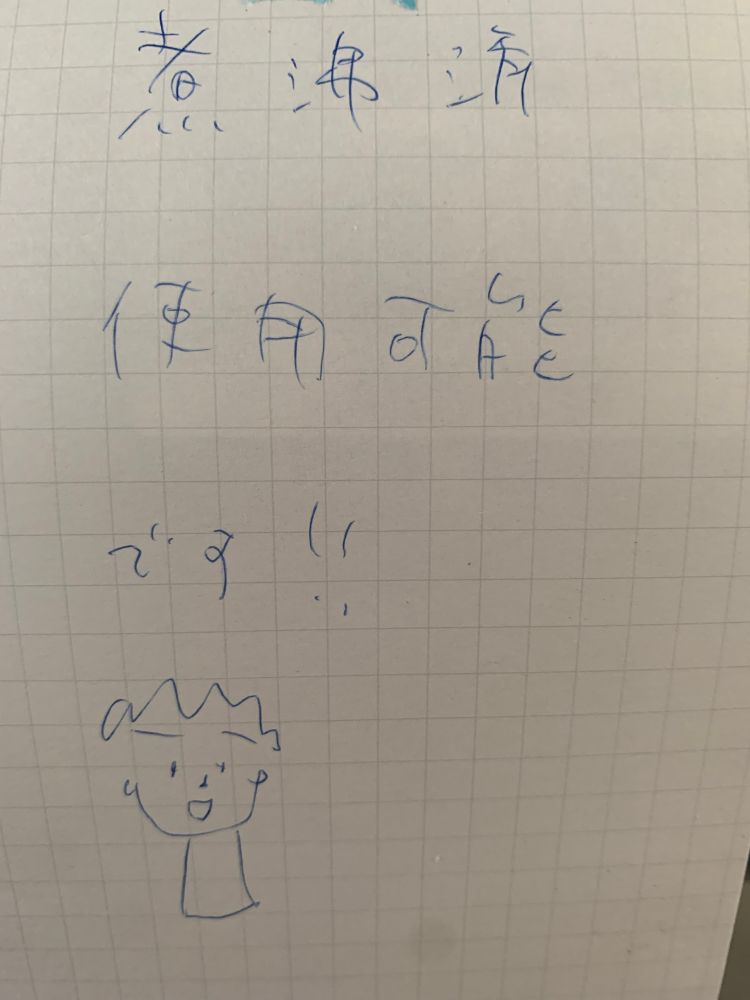 煮沸済
使用可能
です!!